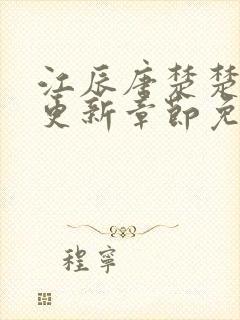 江辰唐楚楚
更新章節免
程寧